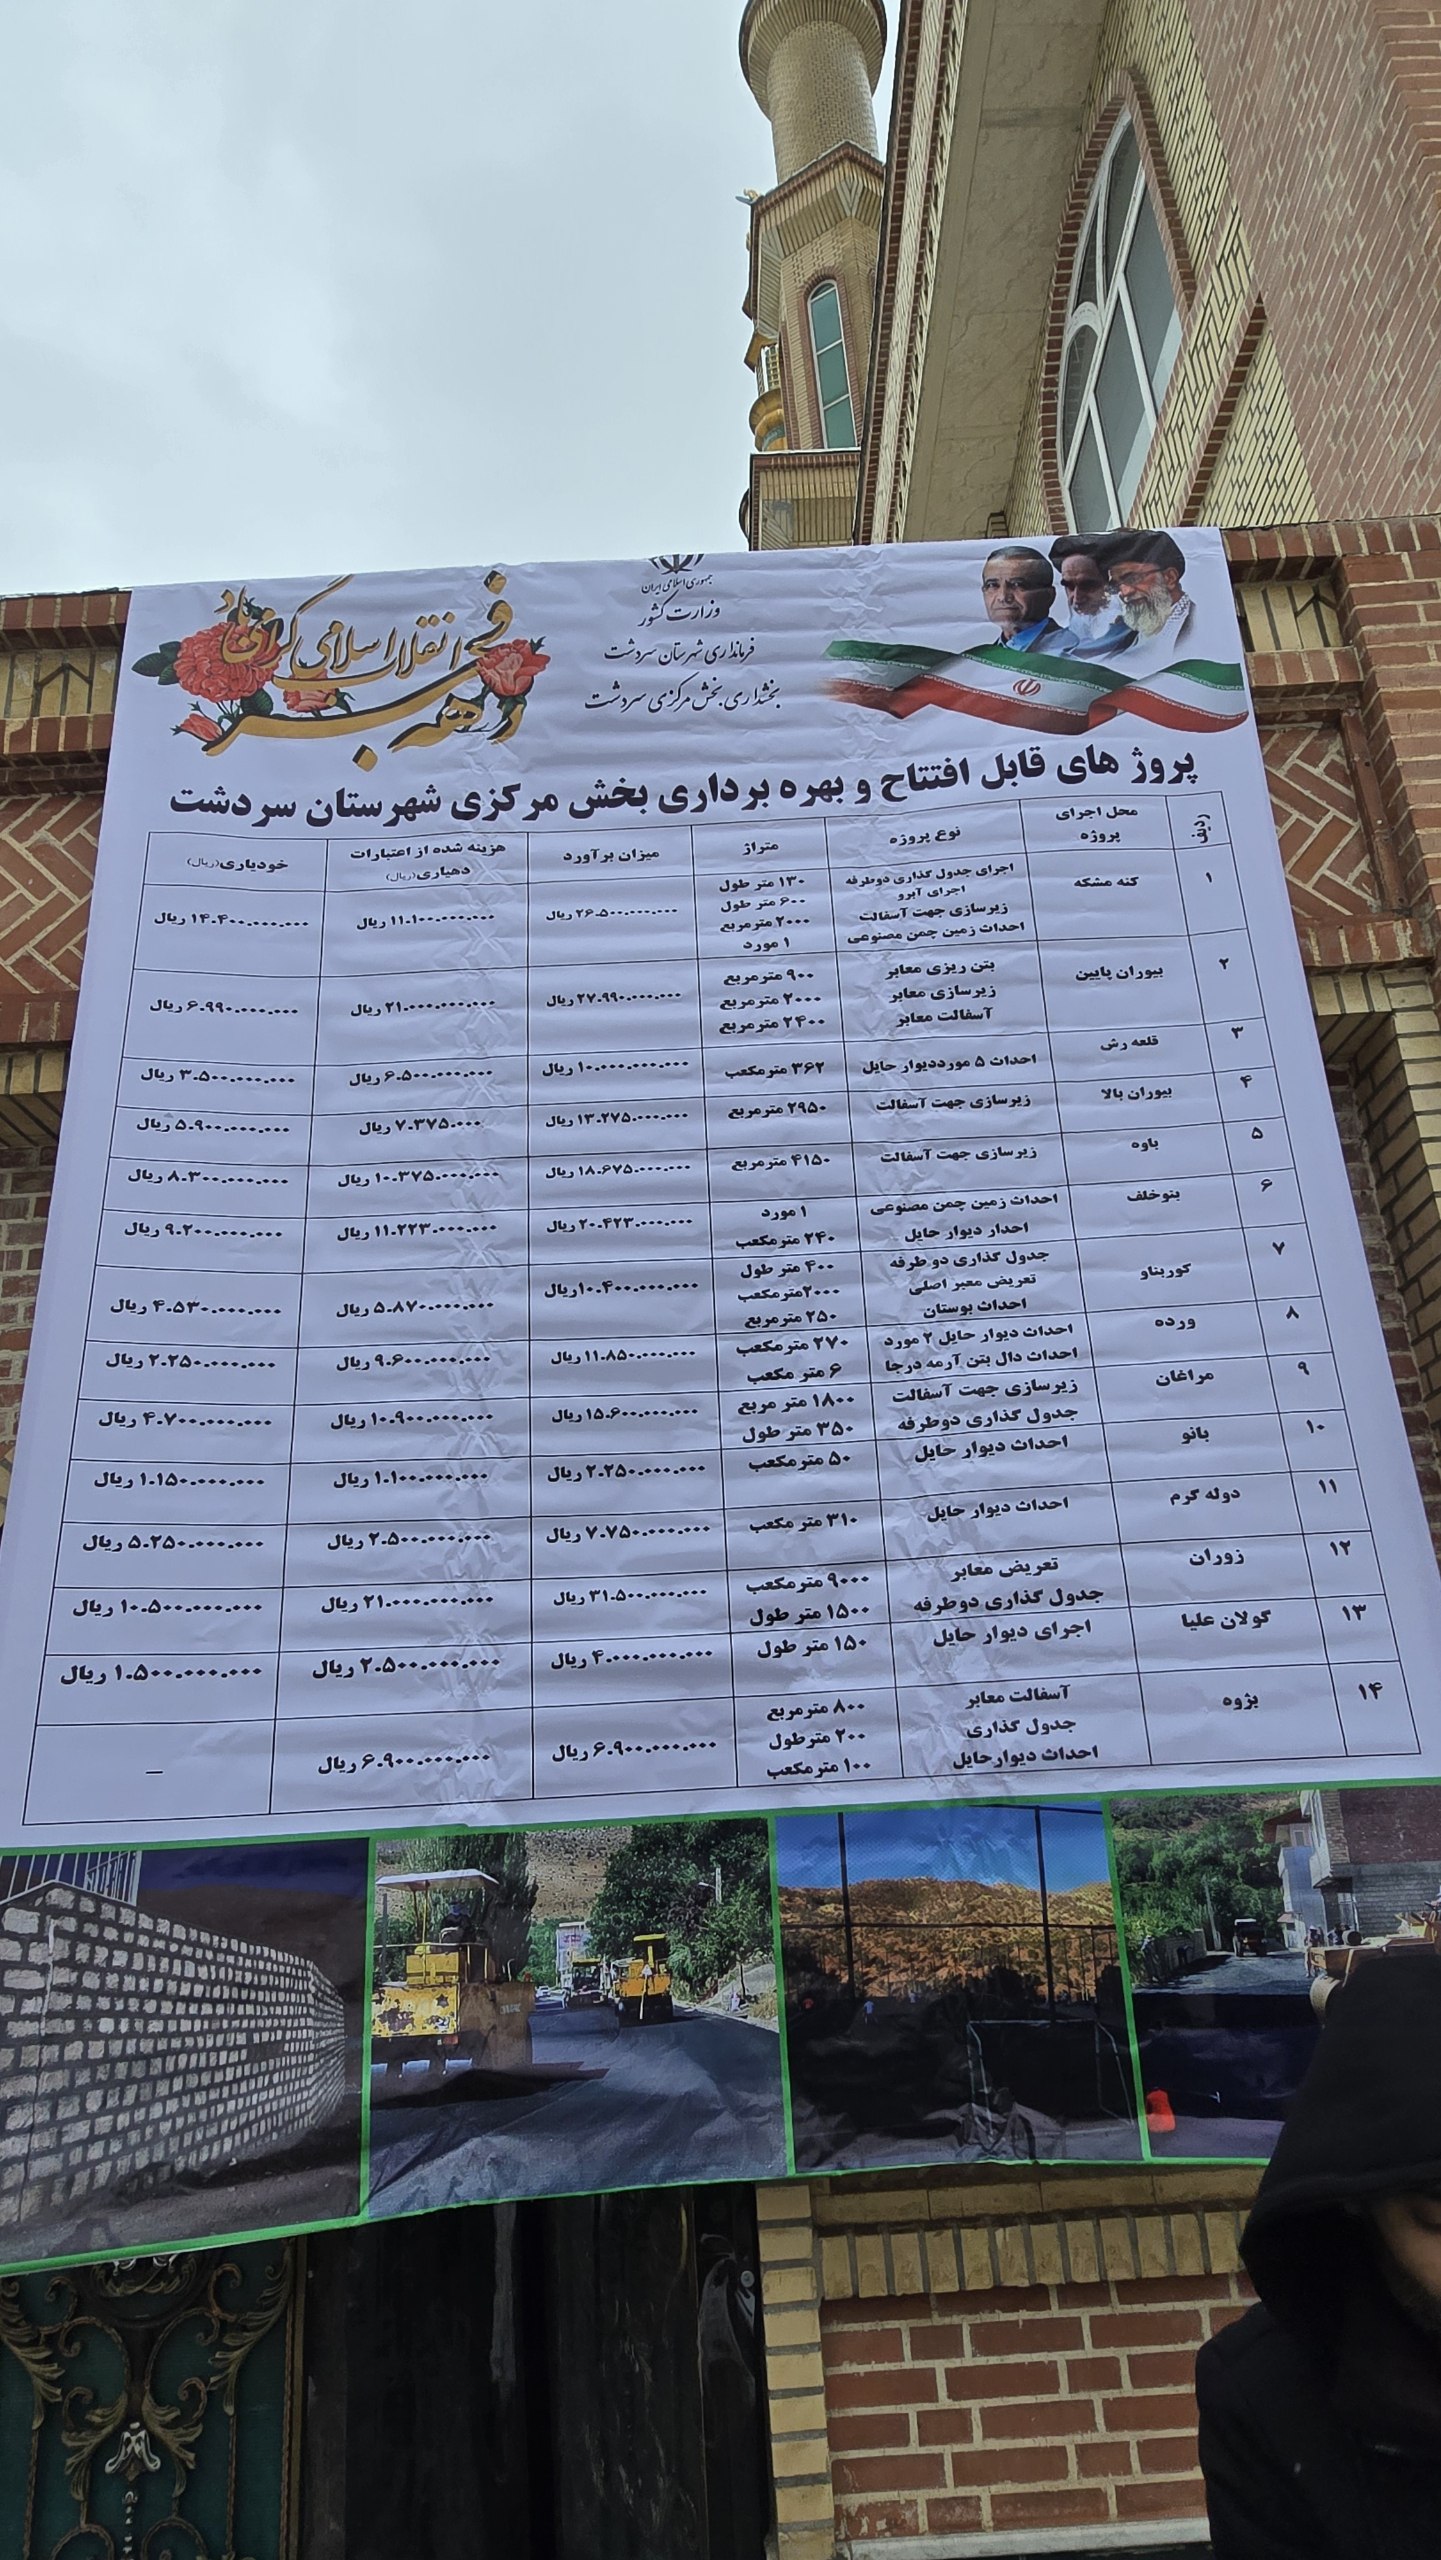 جمهوری اسلامی ایران
وزارت کشور
فرمانداری شهرستان سردشت
بخشداری بخش مرکزی سردشت
دهه فجر انقلاب اسلامی گرامی باد
پروژ های قابل افتتاح و بهره برداری بخش مرکزی شهرستان سردشت
ردیف محل اجرای پروژه نوع پروژه متراژ میزان برآورد هزینه شده از اعتبارات دهیاری(ریال) خودیاری(ریال)
۱ کنه مشکه اجرای جدول گذاری دوطرفه ۱۳۰ متر طول ۲۶.۵۰۰.۰۰۰.۰۰۰ ریال ۱۱.۱۰۰.۰۰۰.۰۰۰ ریال ۱۴.۴۰۰.۰۰۰.۰۰۰ ریال
اجرای آبرو ۶۰۰ متر طول
زیرسازی جهت آسفالت ۲۰۰۰ مترمربع
احداث زمین چمن مصنوعی ۱ مورد
۲ بیوران پایین بتن ریزی معابر ۹۰۰ مترمربع ۲۷.۹۹۰.۰۰۰.۰۰۰ ریال ۲۱.۰۰۰.۰۰۰.۰۰۰ ریال ۶.۹۹۰.۰۰۰.۰۰۰ ریال
زیرسازی معابر ۲۰۰۰ مترمربع
آسفالت معابر ۲۴۰۰ مترمربع
۳ قلعه رش احداث ۵ مورددیوار حایل ۳۶۲ مترمکعب ۱۰.۰۰۰.۰۰۰.۰۰۰ ریال ۶.۵۰۰.۰۰۰.۰۰۰ ریال ۳.۵۰۰.۰۰۰.۰۰۰ ریال
۴ بیوران بالا زیرسازی جهت آسفالت ۲۹۵۰ مترمربع ۱۳.۲۷۵.۰۰۰.۰۰۰ ریال ۷.۳۷۵.۰۰۰ ریال ۵.۹۰۰.۰۰۰.۰۰۰ ریال
۵ باوه زیرسازی جهت آسفالت ۴۱۵۰ مترمربع ۱۸.۶۷۵.۰۰۰.۰۰۰ ریال ۱۰.۳۷۵.۰۰۰.۰۰۰ ریال ۸.۳۰۰.۰۰۰.۰۰۰ ریال
۶ بتوخلف احداث زمین چمن مصنوعی ۱ مورد ۲۰.۴۲۳.۰۰۰.۰۰۰ ریال ۱۱.۲۲۳.۰۰۰.۰۰۰ ریال ۹.۲۰۰.۰۰۰.۰۰۰ ریال
احدار دیوار حایل ۲۴۰ مترمکعب
۷ کوربناو جدول گذاری دو طرفه ۴۰۰ متر طول ۱۰.۴۰۰.۰۰۰.۰۰۰ریال ۵.۸۷۰.۰۰۰.۰۰۰ ریال ۴.۵۳۰.۰۰۰.۰۰۰ ریال
تعریض معبر اصلی ۲۰۰۰مترمکعب
احداث بوستان ۲۵۰ مترمربع
۸ ورده احداث دیوار حایل ۲ مورد ۲۷۰ مترمکعب ۱۱.۸۵۰.۰۰۰.۰۰۰ ریال ۹.۶۰۰.۰۰۰.۰۰۰ ریال ۲.۲۵۰.۰۰۰.۰۰۰ ریال
احداث دال بتن آرمه درجا ۶ متر مکعب
۹ مراغان زیرسازی جهت آسفالت ۱۸۰۰ متر مربع ۱۵.۶۰۰.۰۰۰.۰۰۰ ریال ۱۰.۹۰۰.۰۰۰.۰۰۰ ریال ۴.۷۰۰.۰۰۰.۰۰۰ ریال
جدول گذاری دوطرفه ۳۵۰ متر طول
۱۰ بانو احداث دیوار حایل ۵۰ مترمکعب ۲.۲۵۰.۰۰۰.۰۰۰ ریال ۱.۱۰۰.۰۰۰.۰۰۰ ریال ۱.۱۵۰.۰۰۰.۰۰۰ ریال
۱۱ دوله گرم احداث دیوار حایل ۳۱۰ متر مکعب ۷.۷۵۰.۰۰۰.۰۰۰ ریال ۲.۵۰۰.۰۰۰.۰۰۰ ریال ۵.۲۵۰.۰۰۰.۰۰۰ ریال
۱۲ زوران تعریض معابر ۹۰۰۰ مترمکعب ۳۱.۵۰۰.۰۰۰.۰۰۰ ریال ۲۱.۰۰۰.۰۰۰.۰۰۰ ریال ۱۰.۵۰۰.۰۰۰.۰۰۰ ریال
جدول گذاری دوطرفه ۱۵۰۰ متر طول
۱۳ گولان علیا اجرای دیوار حایل ۱۵۰ متر طول ۴.۰۰۰.۰۰۰.۰۰۰ ریال ۲.۵۰۰.۰۰۰.۰۰۰ ریال ۱.۵۰۰.۰۰۰.۰۰۰ ریال
۱۴ بژوه آسفالت معابر ۸۰۰ مترمربع ۶.۹۰۰.۰۰۰.۰۰۰ ریال ۶.۹۰۰.۰۰۰.۰۰۰ ریال –
جدول گذاری ۲۰۰ مترطول
احداث دیوارحایل ۱۰۰ مترمکعب